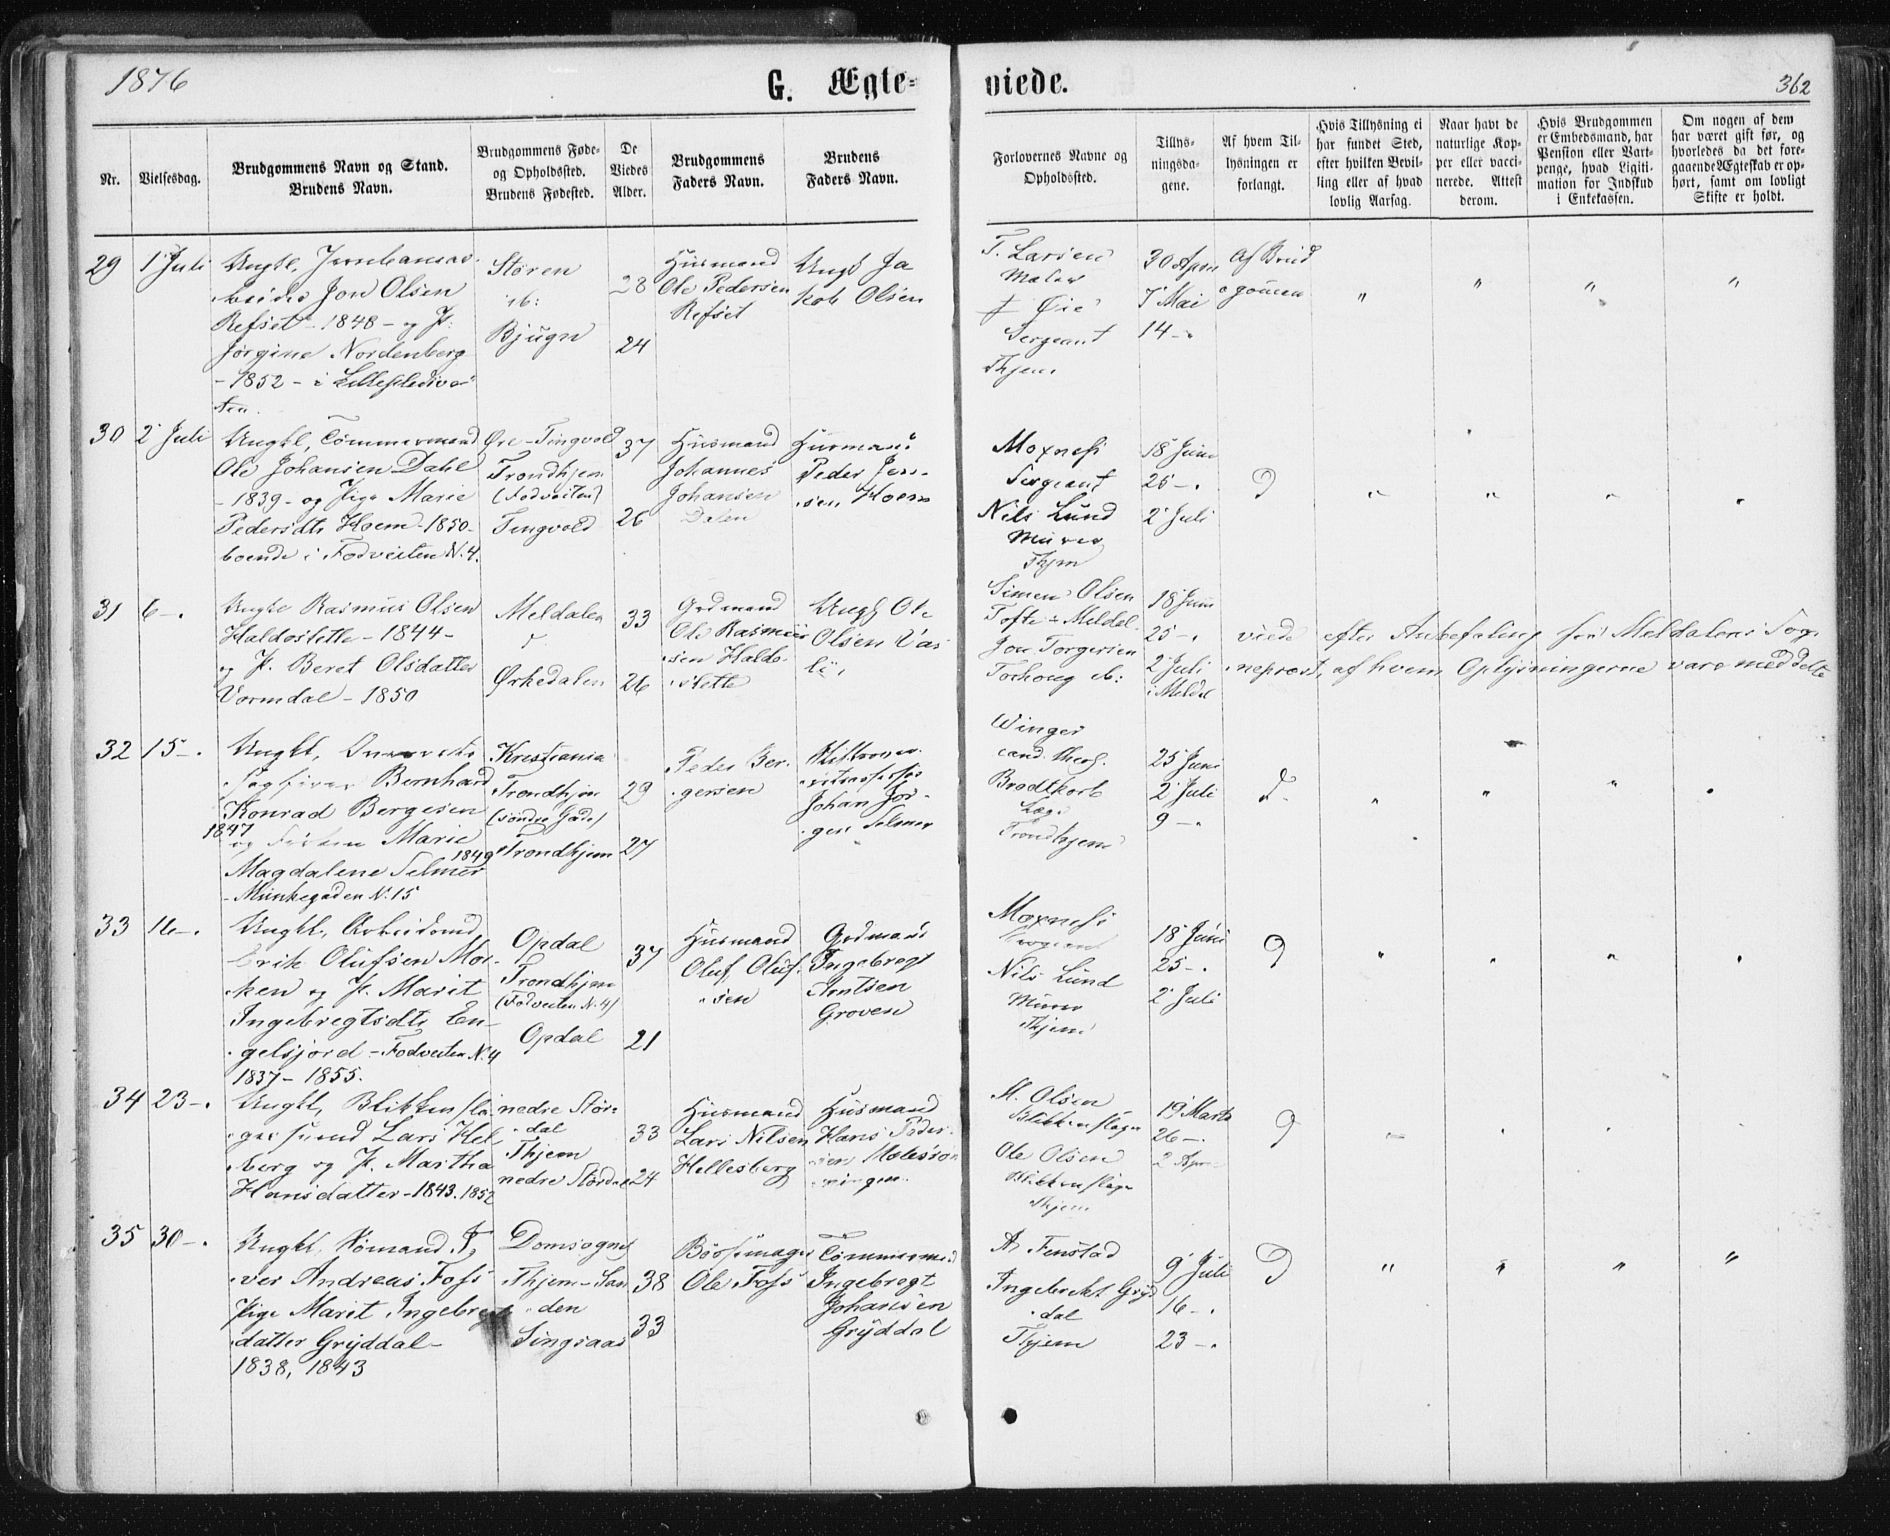 1876
G. Ægte-
viede.
362
Nr.
Vielsesdag.
Brudgommens Navn og Stand.
Brudens Navn.
Brudgommens Føde-
og Opholdssted.
Brudens Fødested.
De
Viedes
Alder.
Brudgommens
Faders Navn.
Brudens
Faders Navn.
Forlovernes Navne og
Opholdssted.
Tillys-
ningsda-
gene.
Af hvem Til-
lysningen er
forlangt.
Hvis Tillysning ei
har fundet Sted,
efter hvilken Bevil-
ling eller af hvad
lovlig Aarsag.
Naar havt de
naturlige Kop-
per eller vacci-
nerede. Attest
derom.
Hvis Brudgommen
er Embedsmand, har
Pension eller Vart-
penge, hvad Ligiti-
mation for Indskud
i Enkekassen.
Om nogen af dem
har været gift før, og
hvorledes da det fore-
gaaende Ægteskab er op-
hørt, samt om lovligt
Skifte er holdt.
29
1 Juli
Ungkl,
Jon Olsen
Refset - 1848 - og P:
Jørgine Nordenberg
- 1852 - i
Støren
Bjugn
28
24
Husmand
Ole Pedersen
Refset
Ungk Ja
kob Olsen
T. Larsen
Maler
Øie
Sergeant
Thjem
30 April
7 Mai
14 -
Af Brud
gomen
30
2 Juli
Ungkl, Tømmermand
Ole Johansen Dahl
- 1839 - og Pige Marie
Pedersdtr Hoem - 1850 -
boende i Fodveiten N. 4.
Øre - Tingvold
Trondhjem
(Fodveiten)
Tingvold
37
26
Husmand
Johannes
Johansen
Dalen
Husmand
Peder Jen-
sen Hoem
Moxness
Sergeant
Nils Lund
Murer
Thjm
18 Juni
25 -
2 Juli
31
6 -
Ungkl Rasmus Olsen
Haldostette - 1844 -
og P. Beret Olsdatter
Vormdal - 1850
Meldalen
Ørkedalen
33
26
Grdmand
Ole Rasmus
sen Haldo-
stette
Ungk Ole
Olsen
Simen Olsen
Tofte - Meldal
Jon Torgersen
18 Juni
25 -
2 Juli
i Meldal
viede efter Anbefaling fra Meldalens Sog-
nepræst, af hvem Oplysningerne vare meddelte
32
15 -
Ungkl,
Sagfører Bernhard
Konrad Bergersen
1847
og Frøken Marie
1849
Magdalene Selmer
- Munkegaden N. 15
Kristiania
Trondhjm
(søndre Gade)
Trondhjem
29
27
Peder Ber-
gersen
Johan Jør-
gen Selmer
Winger
cand. theol.
Brodtkorb
Læge
Trondhjem
25 Juni
2 Juli
9 -
33
16 -
Ungkl, Arbeidsmd
Erik Olufsen Mor-
ken og P. Marit
Ingebregtsdtr En-
gelsjord - Fodveiten N. 4
1837 - 1855.
Opdal
Trondhjem
(Fodveiten N. 4)
Opdal
37
21
Husmand
Oluf Oluf-
sen
Grdmand
Ingebregt
Arntsen
Groven
Moxness
Sergeant
Nils Lund
Murer
Thjem
18 Juni
25 -
2 Juli
34
23 -
Ungkl, Blikkenslå-
gersvend Lars Hel-
berg og P. Martha
Hansdatter - 1843. 1852
nedre Stør-
dal
Thjem
nedre Størdal
33
24
Husmand
Lars Nilsen
Hellesberg
Husmand
Hans Peder-
sen
M. Olsen
Blikkenslager
Ole Olsen
Blikkenslager
Thjem
19 Marts
26 -
2 Apr
35
30 -
Ungkl. Sømand I-
ver Andreas Foss
Pige Marit Ingebregt
datter Gryddal -
1838, 1843
Domsognet
Thjem - San
den
Singsaas
38
33
Børsemager
Ole Foss
Tømmermand
Ingebregt
Johansen
Gryddal
A. Fenstad
Ingebrekt Gryd
dal
Thjem
9 Juli
16 -
23 -